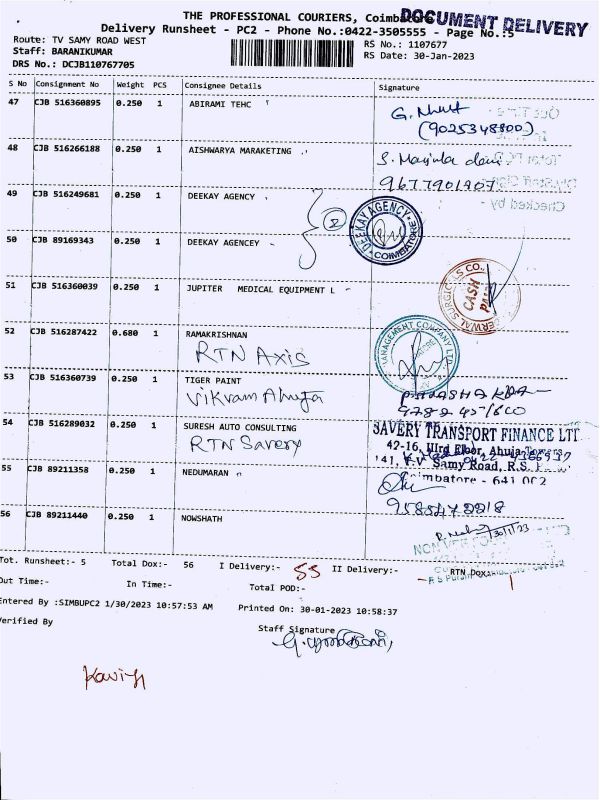 THE PROFESSIONAL COURIERS, Coimbatore
DOCUMENT DELIVERY
Delivery Runsheet - PC2 - Phone No.:0422-3505555 - Page No.:5
Route: TV SAMY ROAD WEST
RS No.: 1107677
Staff: BARANIKUMAR
RS Date: 30-Jan-2023
DRS No.: DCJB110767705
S No Consignment No Weight PCS Consignee Details Signature
47 CJB 516360895 0.250 1 ABIRAMI TEHC
(9025348800)
48 CJB 516266188 0.250 1 AISHWARYA MARAKETING
9677901907
Checked by :-
49 CJB 516249681 0.250 1 DEEKAY AGENCY
2
DEEKAY AGENCY
COIMBATORE
50 CJB 89169343 0.250 1 DEEKAY AGENCEY
51 CJB 516360039 0.250 1 JUPITER MEDICAL EQUIPMENT L
CASH PAID
52 CJB 516287422 0.680 1 RAMAKRISHNAN
RTN Axis
MANAGEMENT COMPANY LTD.
53 CJB 516360739 0.250 1 TIGER PAINT
Vikram Ahuja
54 CJB 516289032 0.250 1 SURESH AUTO CONSULTING
RTN Savery
SAVERY TRANSPORT FINANCE LTD
42-16, IIIrd Floor, Ahuja Towers
141, T.V. Samy Road, R.S.
Coimbatore - 641 002
55 CJB 89211358 0.250 1 NEDUMARAN
56 CJB 89211440 0.250 1 NOWSHATH
30/1/23
Tot. Runsheet:- 5 Total Dox:- 56 I Delivery:- 55 II Delivery:- RTN Dox:- 1
Out Time:- In Time:- Total POD:-
Entered By :SIMBUPC2 1/30/2023 10:57:53 AM Printed On: 30-01-2023 10:58:37
Verified By
Staff Signature